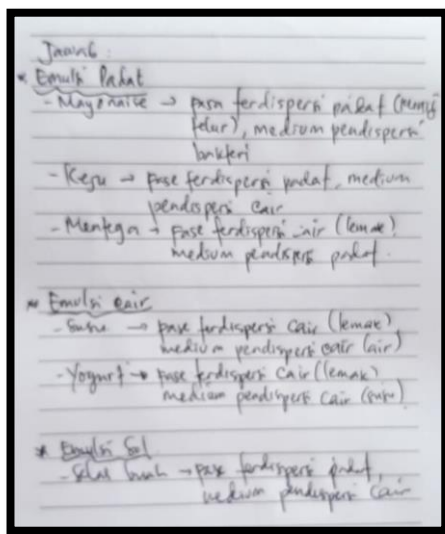 Jawab :
* Emulsi Padat
- Mayonaise → fasa terdispersi padat (
telur), medium pendispersi
bakteri
- Keju → fase terdispersi padat, medium
pendispersi cair
- Mentega → Fase terdispersi cair (lemak)
medium pendispersi padat.
* Emulsi cair
- Susu → fase terdispersi cair (lemak)
medium pendispersi cair (air)
- Yogurt → fase terdispersi cair (lemak)
medium pendispersi cair (susu).
* Emulsi Sol
- Selai buah → fase terdispersi padat,
medium pendispersi cair